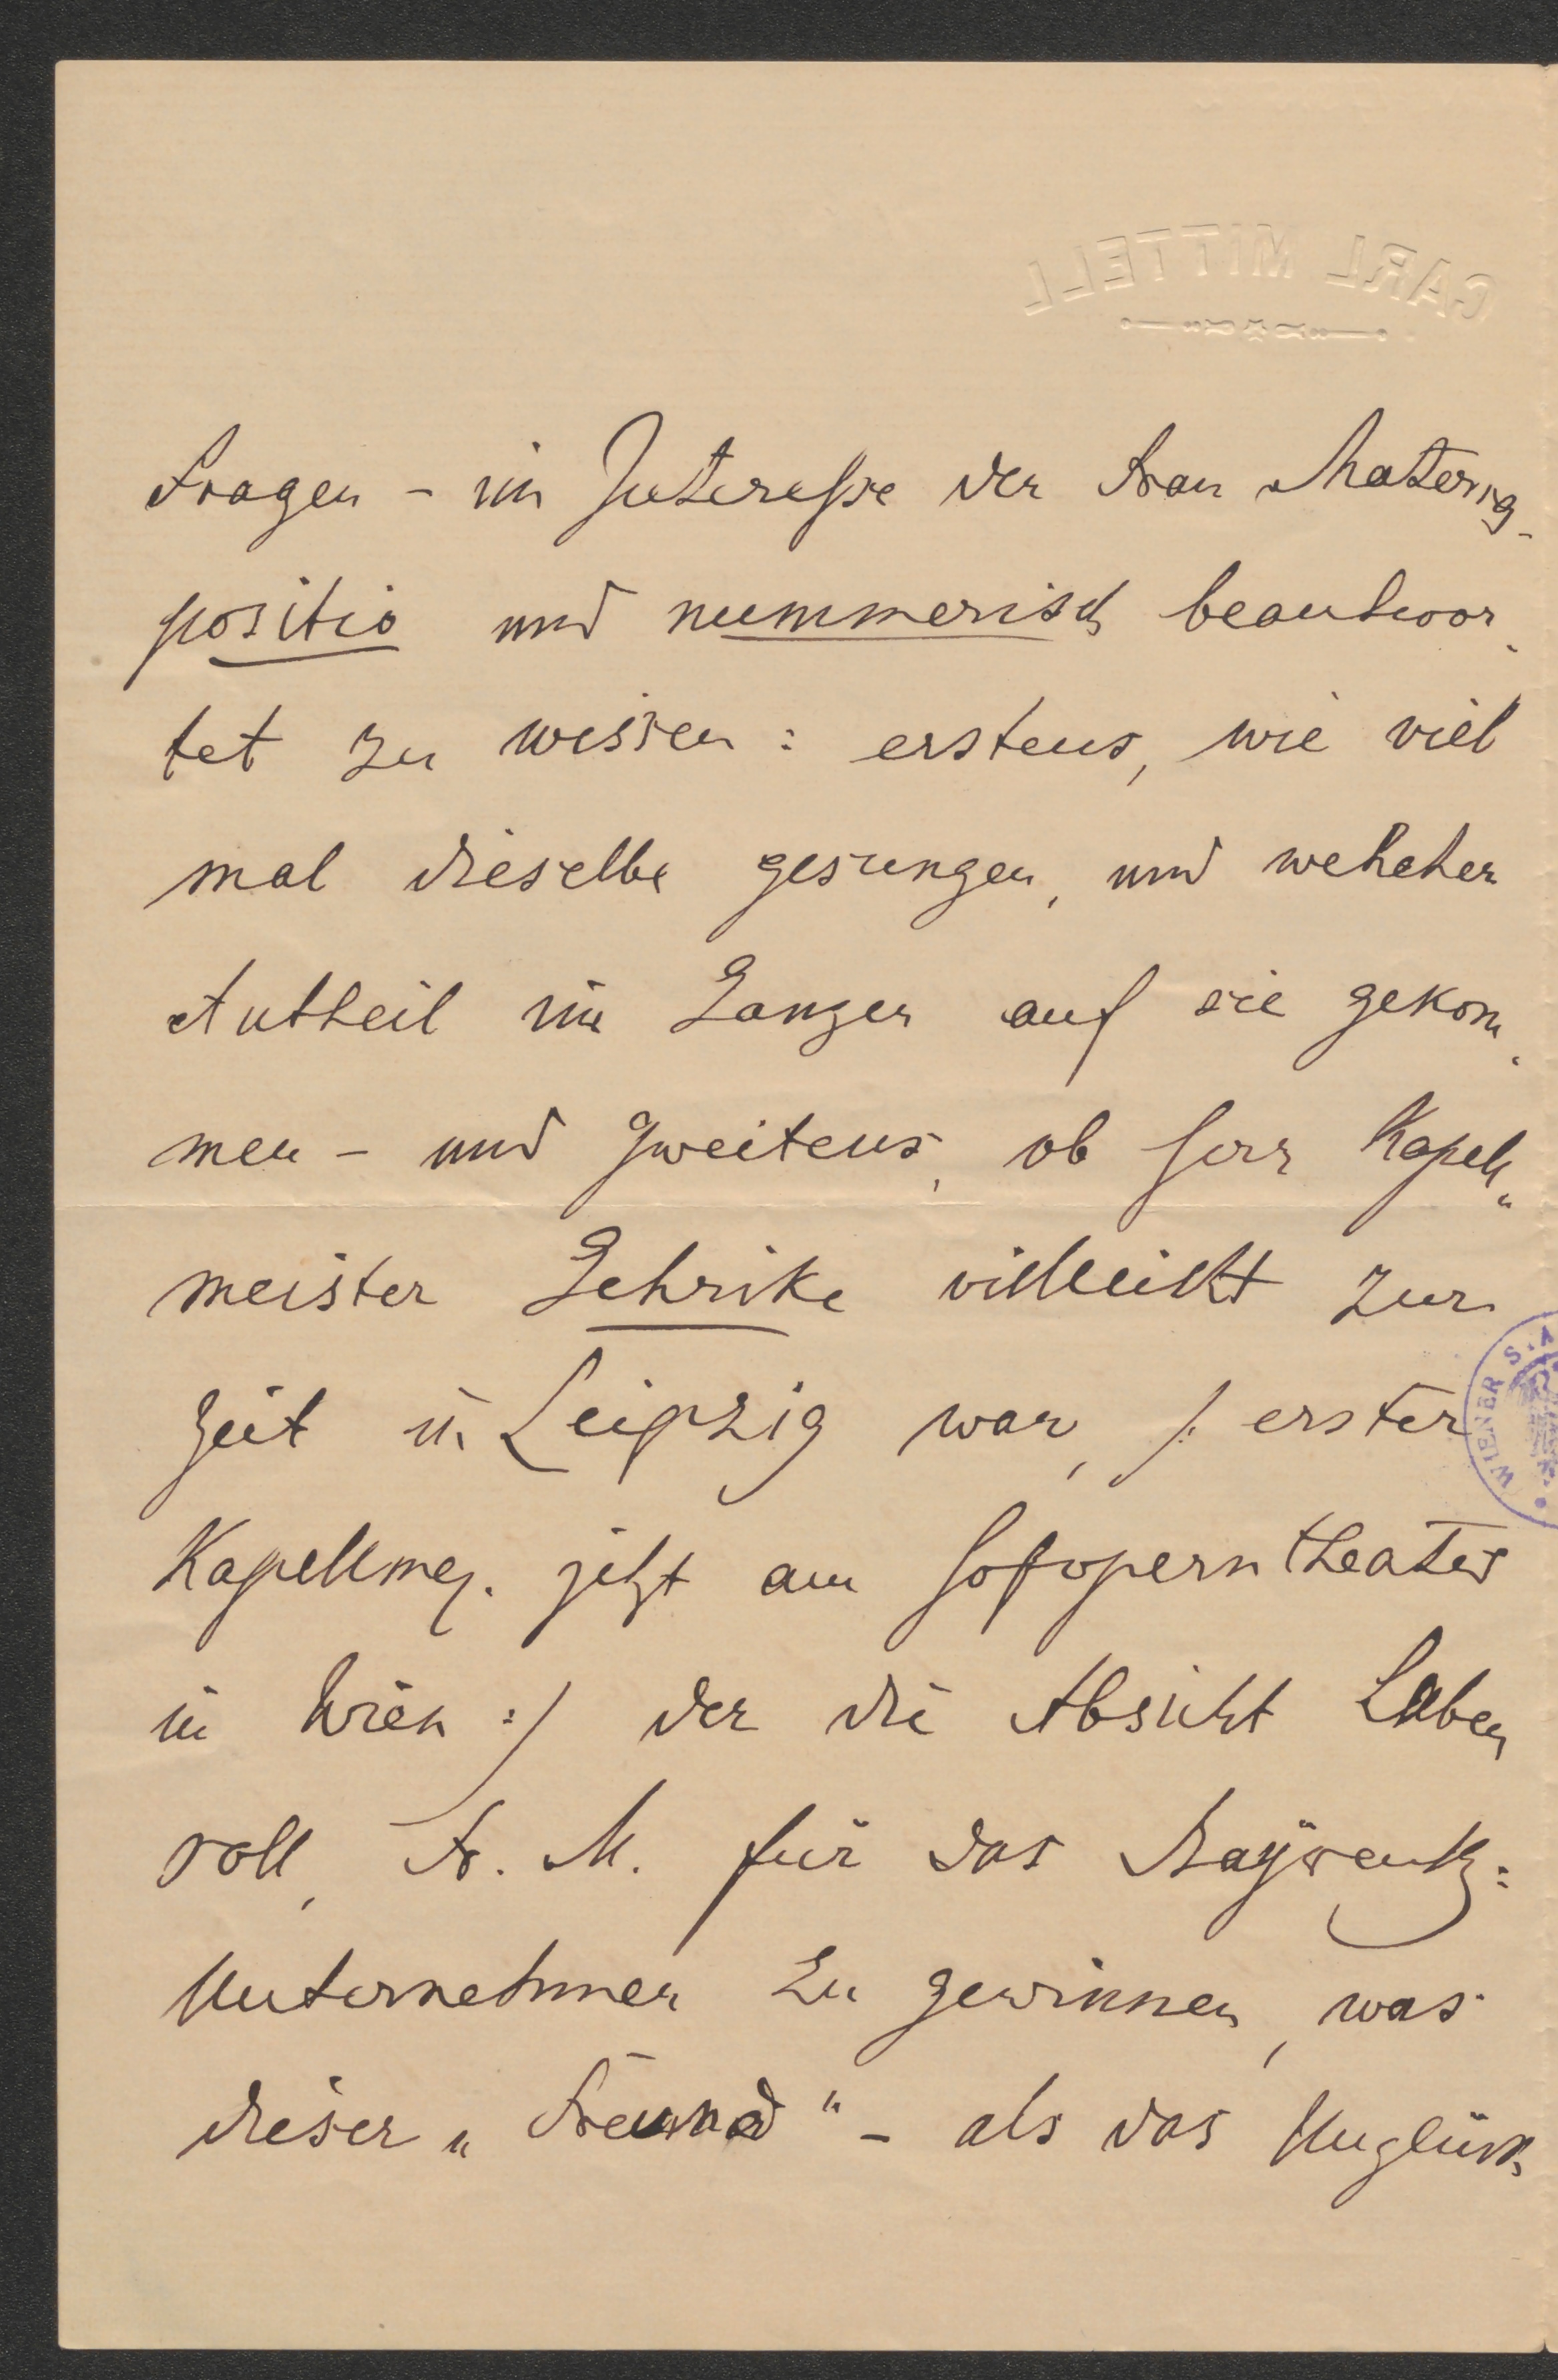 CARL MITTELL
Fragen – im Interesse der Frau Materna-
positiv und nummerisch beantwor-
tet zu wissen: erstens, wie viel
mal dieselbe gesungen, und welcher
Antheil im Ganzen auf sie gekom-
men – und zweitens, ob Herr Kapell-
meister Gehrike vielleicht zur
Zeit in Leipzig war, /: erster
Kapellm. jetzt am Hofoperntheater
in Wien :/ der die Absicht haben
soll, Fr. M. für das Bayreuth:
Unternehmen zu gewinnen, was
dieser „Freund" – als das Unglück
WIENER S.